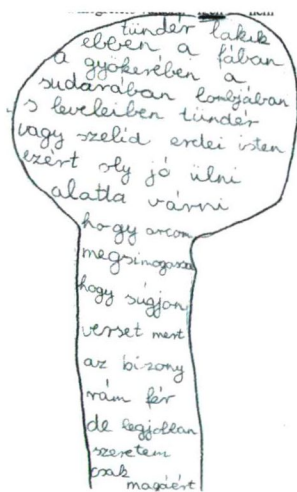 nem
tündér lakik
ebben a fában
a gyökerében a
sudarában lombjában
s leveleiben tündér
vagy szelid erdei isten
ezért oly jó ülni
alatta várni
hogy arcon
megsimogassa
hogy súgjon
verset mert
az bizony
rám fér
de legjobban
szeretem
csak
magáért